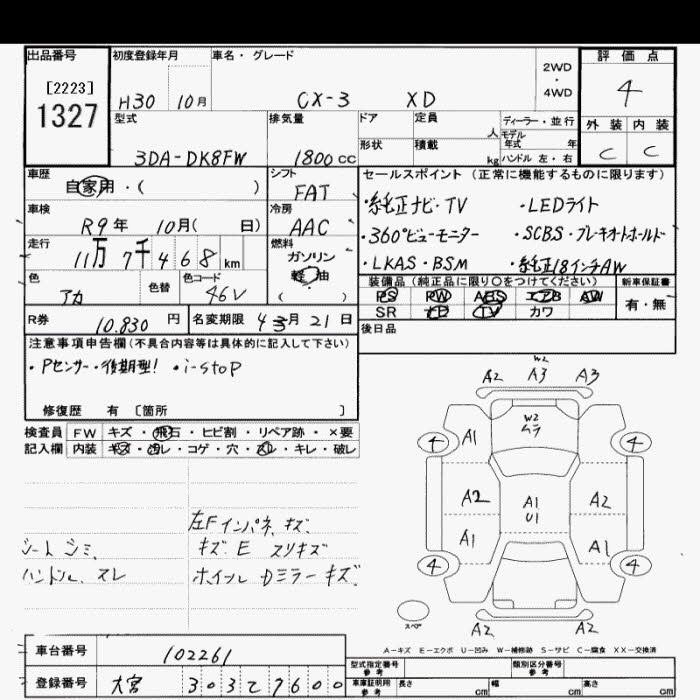 出品番号 [2223] 1327
初度登録年月 H30 10月
車名・グレード CX-3 XD
2WD・4WD
評価点 4
外装 内装
C C
型式 3DA-DK8FW
排気量 1800 CC
ドア 定員 人
形状 積載 kg
ディーラー・並行
モデル年式 年
ハンドル 左・右
車歴 自家用・( )
シフト FAT
車検 R9年 10月( 日)
冷房 AAC
走行 11万7千468 km
燃料 ガソリン 軽油 ( )
色 アカ 色替 色コード 46V
セールスポイント(正常に機能するものに限ります)
・純正ナビ・TV ・LEDライト
・360°ビューモニター ・SCBS・ブレーキオートホールド
・LKAS・BSM ・純正18インチAW
装備品(純正品に限り○をつけてください) 新車保証書
PS PW ABS エアB AW 有・無
SR ナビ TV カワ
R券 10.830 円 名変期限 4 3月 21日
後日品
注意事項申告欄(不具合内容等は具体的に記入して下さい)
・Pセンサー・後期型! ・i-stop
修復歴 有 〔箇所 〕
検査員 FW キズ・飛石・ヒビ割・リペア跡・×要
記入欄 内装 キズ・汚レ・コゲ・穴・スレ・キレ・破レ
左Fインパネ キズ
シート シミ キズ E スリキズ
ハンドル スレ ホイール Dミラー キズ
W2
A2 A3 A3
W2
ムラ
4 A1 4
A2 A1 A2
U1
A1 A1
4 4
スペア A2 A2
A-キズ E-エクボ U-凹み W-補修跡 S-サビ C-腐食 XX-交換済
車台番号 102261
登録番号 大宮 303 て 7600
型式指定番号 参考 類別区分番号 参考
車庫証明用 参考 長さ cm 幅 cm 高さ cm